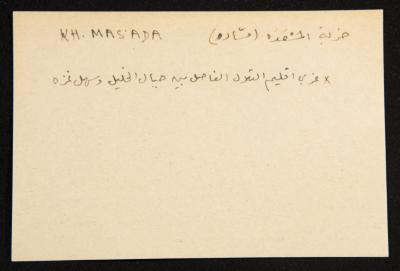 KH. MAS'ADA خربة المصعده (مسّاده)
× غربي اقليم التلول الفاصل بين جبال الخليل وسهل غزه